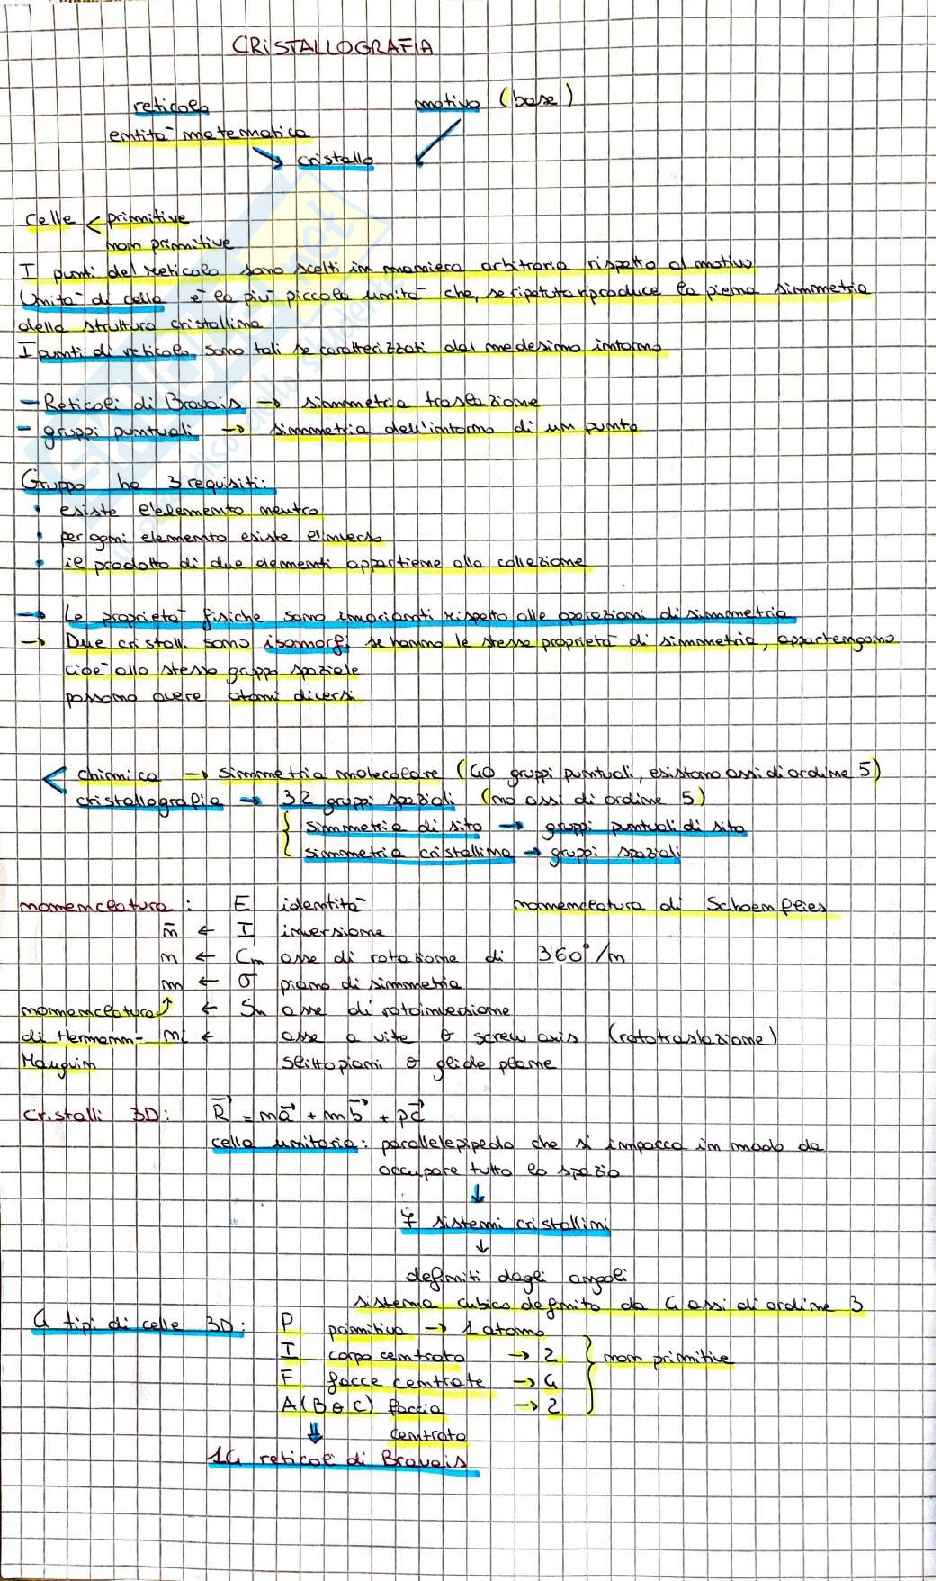 CRISTALLOGRAFIA
reticolo motivo (base)
entità matematica
cristallo
Celle < primitive
non primitive
I punti del reticolo sono scelti in maniera arbitraria rispetto al motivo
Unità di cella è la più piccola unità che, se ripetuta riproduce la piena simmetria
della struttura cristallina
I punti di reticolo sono tali se caratterizzati dal medesimo intorno
- Reticoli di Bravais → simmetria traslazione
- gruppi puntuali → simmetria dell'intorno di un punto
Gruppo ha 3 requisiti:
• esiste l'elemento neutro
• per ogni elemento esiste l'inverso
• il prodotto di due elementi appartiene alla collezione
→ Le proprietà fisiche sono invarianti rispetto alle operazioni di simmetria
→ Due cristalli sono isomorfi se hanno le stesse proprietà di simmetria, appartengono
cioè allo stesso gruppo spaziale
possono avere atomi diversi
< chimica → simmetria molecolare (40 gruppi puntuali, esistono assi di ordine 5)
cristallografia → 32 gruppi spaziali (no assi di ordine 5)
{ simmetria di sito → gruppi puntuali di sito
{ simmetria cristallina → gruppi spaziali
nomenclatura: E identità nomenclatura di Schoenflies
n̄ ← I inversione
n ← Cn asse di rotazione di 360°/n
m ← σ piano di simmetria
nomenclatura ↑ ← Sn asse di rotoinversione
di Hermann- ni ← asse a vite o screw axis (rototraslazione)
Mauguin slittopiani o glide plane
Cristalli 3D: R⃗ = ma⃗ + nb⃗ + pc⃗
cella unitaria: parallelepipedo che si impacca in modo da
occupare tutto lo spazio
↓
7 sistemi cristallini
↓
definiti dagli angoli
sistema cubico definito da 4 assi di ordine 3
4 tipi di celle 3D: P primitiva → 1 atomo
I corpo centrato → 2 } non primitive
F facce centrate → 4
A (B o C) faccia → 2
centrata
↓
14 reticoli di Bravais